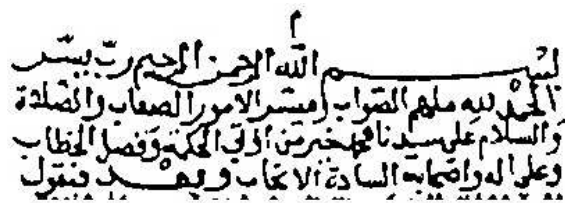 بسم الله الرحمن الرحيم رب يسر
الحمد لله ملهم الصواب وميسر الامور الصعاب والصلاة
والسلام على سيدنا محمد خير من اوتي الحكمة وفصل الخطاب
وعلى اله واصحابه السادة الانجاب وبعد فنقول